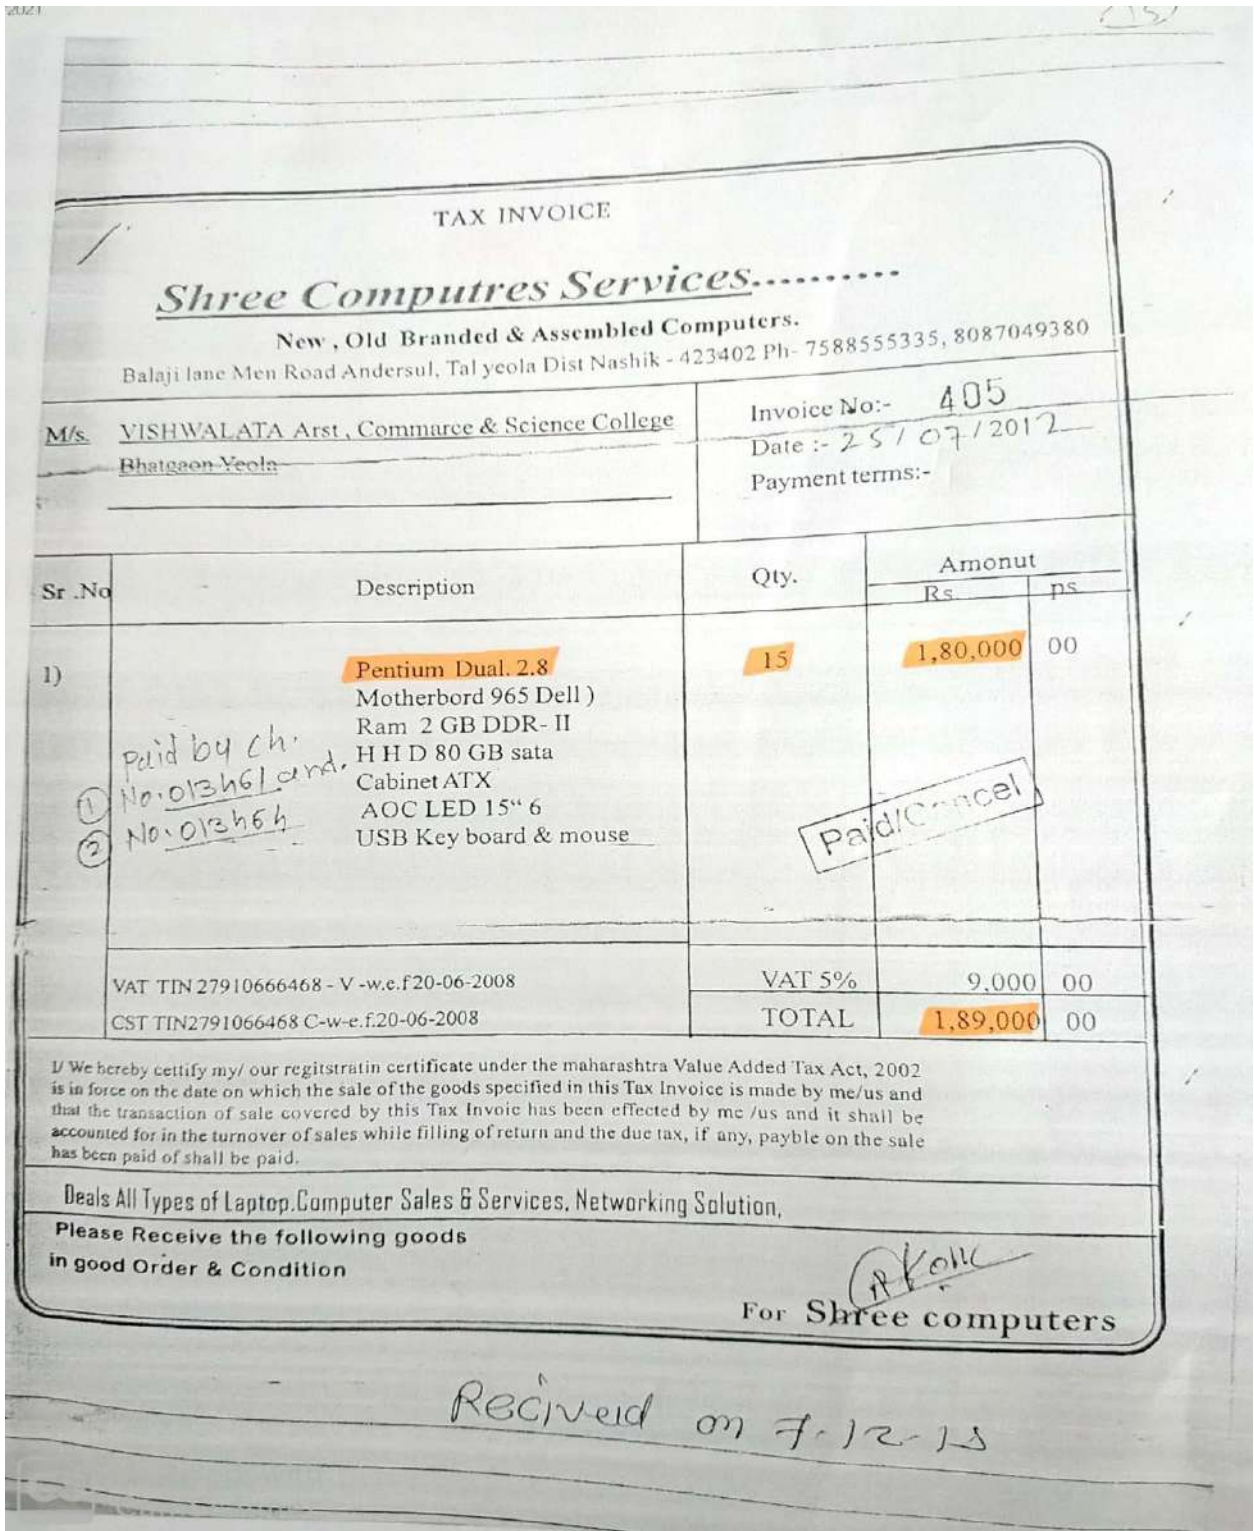 2021
(15)
TAX INVOICE
Shree Computres Services..........
New , Old Branded & Assembled Computers.
Balaji lane Men Road Andersul, Tal yeola Dist Nashik - 423402 Ph- 7588555335, 8087049380
M/s. VISHWALATA Arst , Commarce & Science College
Bhatgaon Yeola
Invoice No:- 405
Date :- 25/07/2012
Payment terms:-
Sr .No Description Qty. Amonut
Rs. ps.
1) Pentium Dual. 2.8 15 1,80,000 00
Motherbord 965 Dell )
Ram 2 GB DDR- II
H H D 80 GB sata
Cabinet ATX
AOC LED 15“ 6
USB Key board & mouse
Paid by ch.
① No. 013461 and.
② No. 013464
Paid/Cancel
VAT TIN 27910666468 - V -w.e.f 20-06-2008 VAT 5% 9,000 00
CST TIN2791066468 C-w-e.f.20-06-2008 TOTAL 1,89,000 00
I/ We hereby cettify my/ our regitstratin certificate under the maharashtra Value Added Tax Act, 2002
is in force on the date on which the sale of the goods specified in this Tax Invoice is made by me/us and
that the transaction of sale covered by this Tax Invoic has been effected by me /us and it shall be
accounted for in the turnover of sales while filling of return and the due tax, if any, payble on the sale
has been paid of shall be paid.
Deals All Types of Laptop.Computer Sales & Services, Networking Solution,
Please Receive the following goods
in good Order & Condition
For Shree computers
Recived on 7.12.15